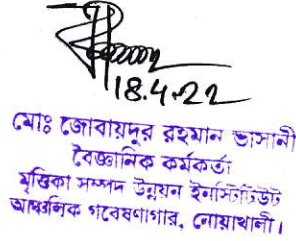 18.4.22
মোঃ জোবায়দুর রহমান ভাসানী
বৈজ্ঞানিক কর্মকর্তা
মৃত্তিকা সম্পদ উন্নয়ন ইনস্টিটিউট
আঞ্চলিক গবেষণাগার, নোয়াখালী।